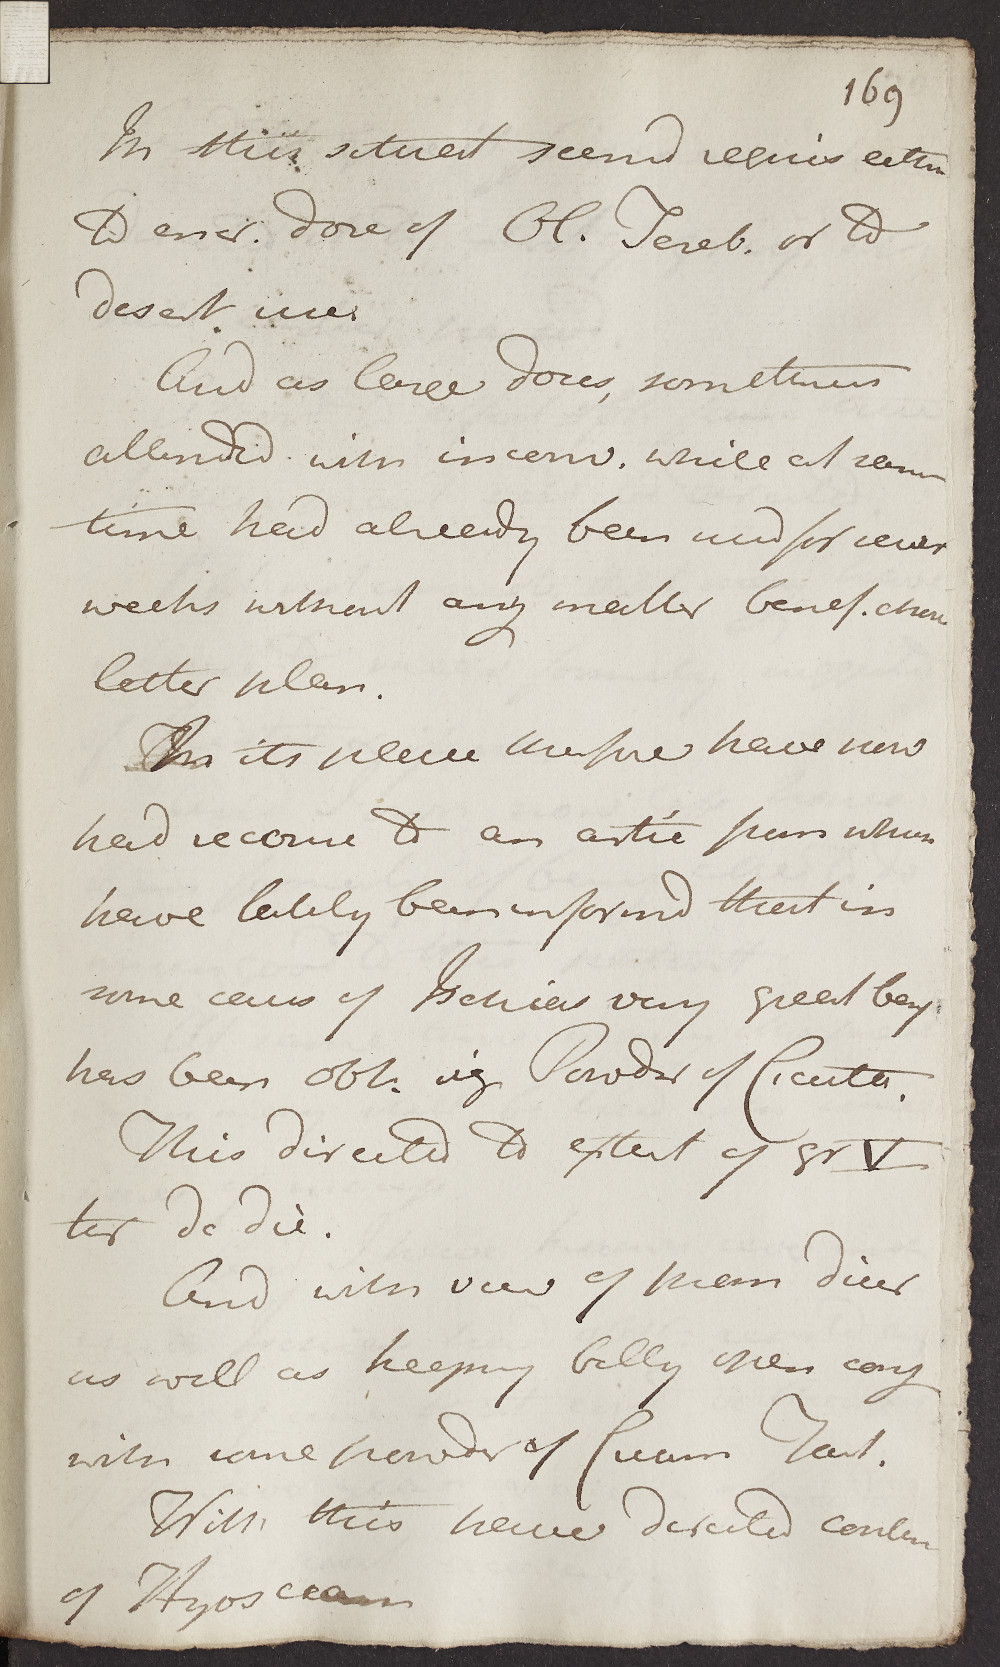 169
In this situat seemd requis either
to encr. dose of Ol. Tereb. or to
desert use
And as large doses, sometimes
attended with inconv. while at same
time had already been usd for
weeks without any matter benef. chose
latter plan.
In its place therefore have now
had recourse to an artic from whch
have lately been informd that in
some cases of Ischias very great benf
has been obt. viz Powder of Cicuta.
This directed to extent of gr V
ter de die.
And with view of prom diur
as well as keeping belly open conj
with some powder of Cream Tart.
With this have directed contin
of Hyosciam